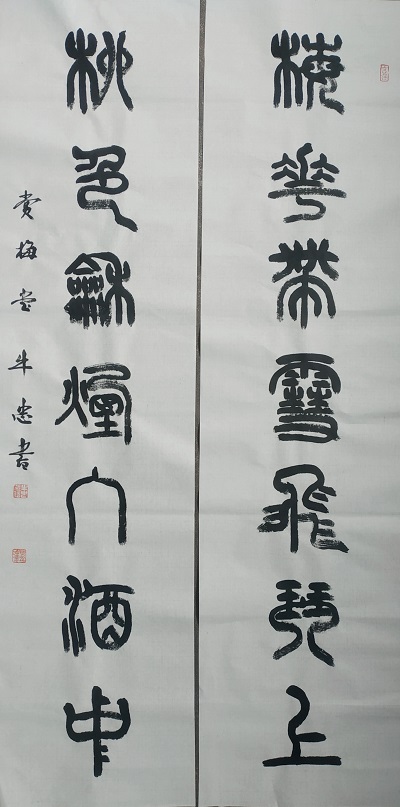 梅華帶雪飛琴上
柳色龢煙入酒中
賞梅堂牛忠書